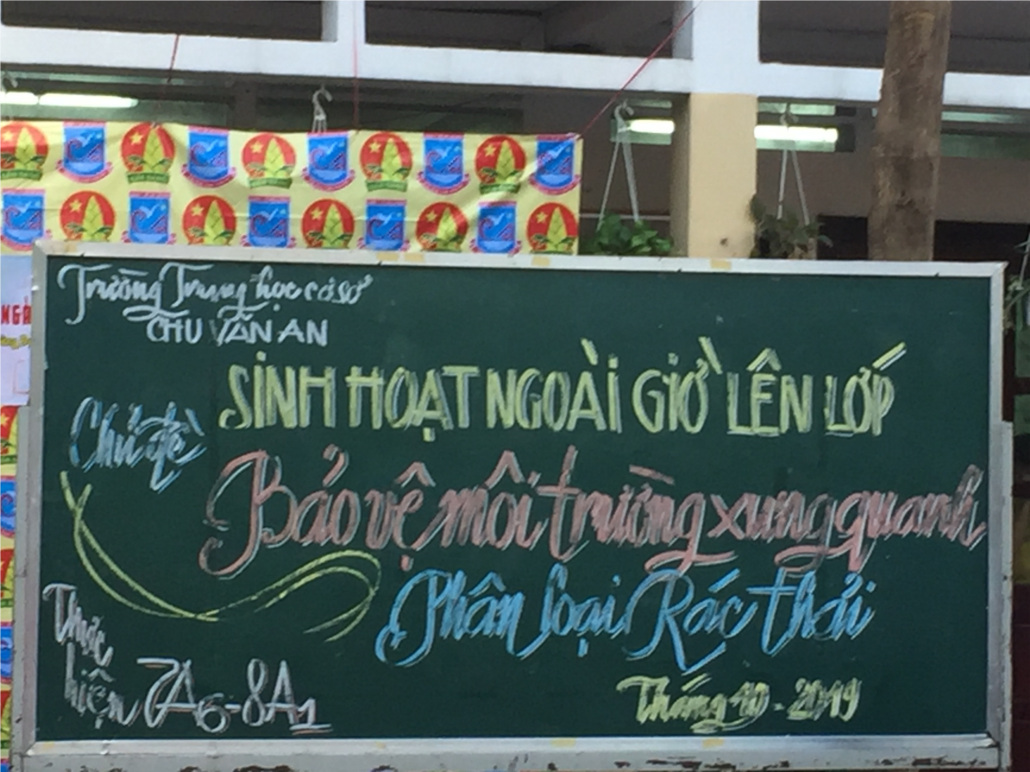 Trường Trung học cơ sở
CHU VĂN AN
SINH HOẠT NGOÀI GIỜ LÊN LỚP
Chủ đề
Bảo vệ môi trường xung quanh
Phân loại Rác thải
Thực hiện 7A6-8A1
Tháng 10 - 2019
NGÀ